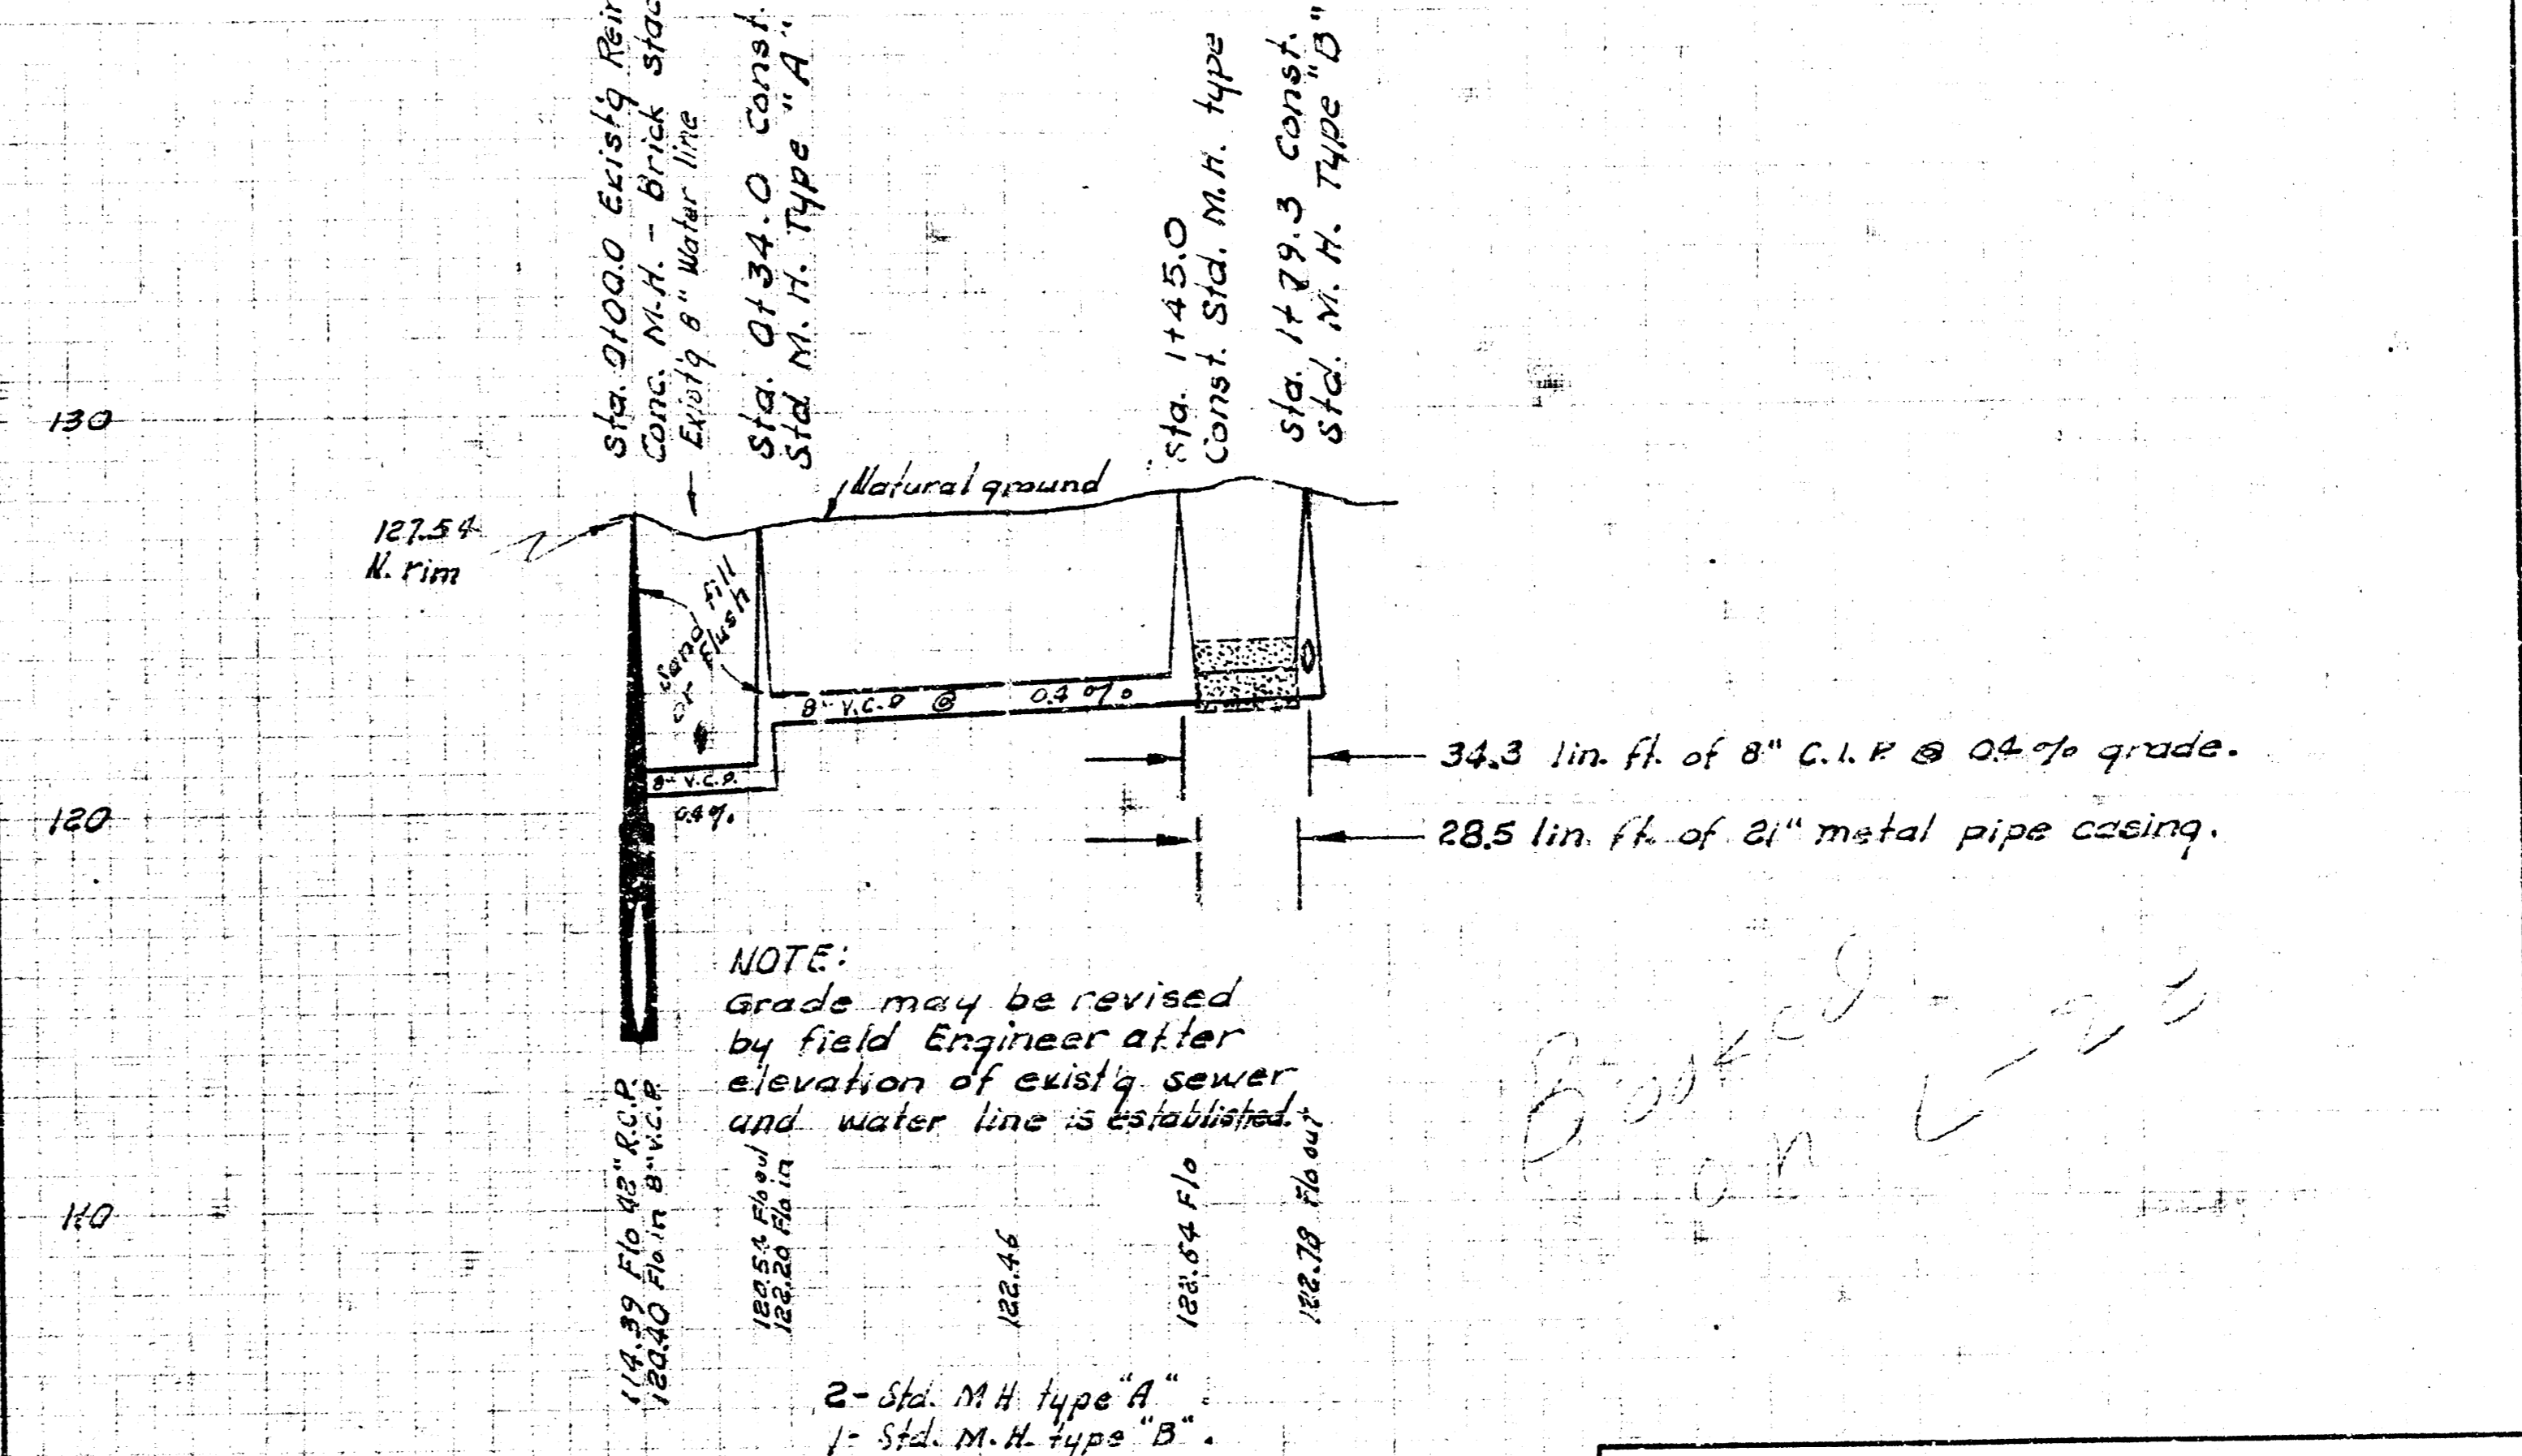 Sta. 0+00.0 Exist'g Rein
Conc. M.H. - Brick stac
Exist'g 8" Water line
Sta. 0+34.0 Const.
Std M.H. Type "A".
Sta. 1+45.0
Const. Std. M.H. type
Sta. 1+79.3 Const.
Std. M.H. Type "B"
130
Natural ground
127.54
N. rim
Sand Fill
or Flush
8" V.C.P. @ 0.4 %
8" V.C.P.
0.4%
34.3 lin. ft. of 8" C.I.P. @ 0.4 % grade.
120
28.5 lin. ft. of 21" metal pipe casing.
NOTE:
Grade may be revised
by field Engineer after
elevation of exist'g sewer
and water line is established.
on
110
114.39 Flo 42" R.C.P.
120.40 Flo in 8" V.C.P.
120.54 Flo out
122.20 Flo in
122.46
122.64 Flo
122.78 Flo out
2- Std. M H type "A".
1- Std. M.H. type "B".